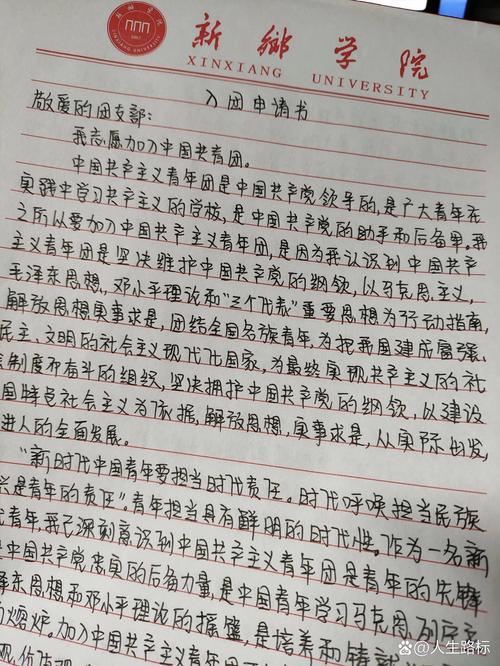 新鄉学院
XINXIANG UNIVERSITY
入团申请书
敬爱的团支部：
我志愿加入中国共青团。
中国共产主义青年团是中国共产党领导的，是广大青年在
实践中学习共产主义的学校，是中国共产党的助手和后备军。我
之所以要加入中国共产主义青年团，是因为我认识到中国共产
主义青年团是坚决维护中国共产党的纲领，以马克思主义，
毛泽东思想，邓小平理论和“三个代表”重要思想为行动指南，
解放思想实事求是，团结全国各族青年，为把我国建成富强、
民主、文明的社会主义现代化国家，为最终实现共产主义的社
制度而奋斗的组织，坚决拥护中国共产党的纲领，以建设
国特色社会主义为依据，解放思想，实事求是，从实际出发，
进人的全面发展。
“新时代中国青年要担当时代责任。时代呼唤担当民族
兴是青年的责任”。青年担当具有鲜明的时代性。作为一名新
青年，我已深刻意识到中国共产主义青年团是青年的先锋
中国共产党忠实的后备力量，是中国青年学习马克思、列宁主
泽东思想和邓小平理论的摇篮，是培养和铸就
熔炉。加入中国共产主义青年团
@人生路标